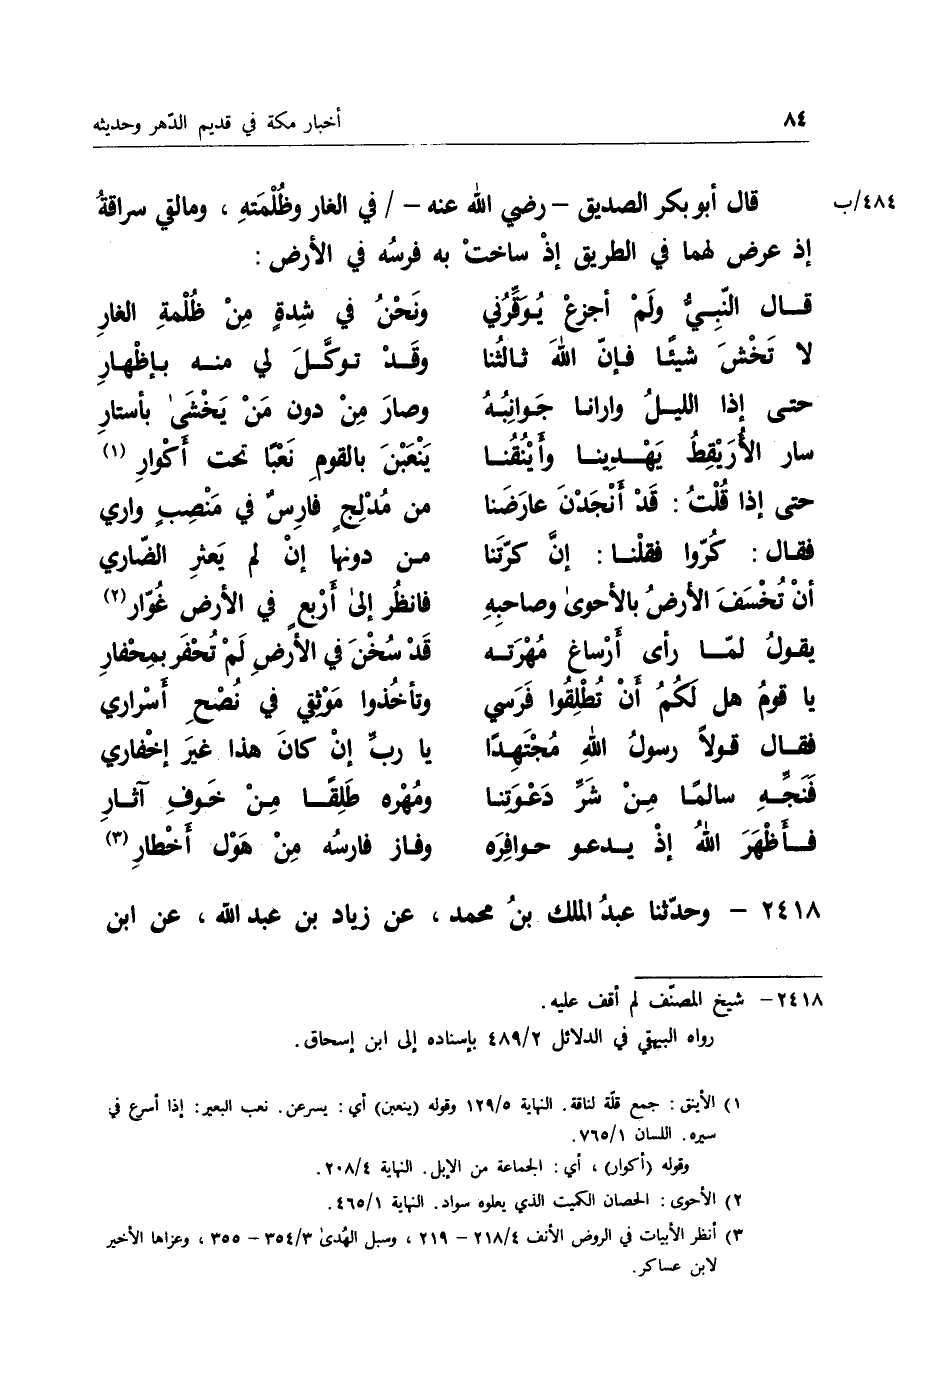 ٨٤ أخبار مكة في قديم الدّهر وحديثه
٤٨٤/ب قال أبو بكر الصديق – رضي الله عنه – / في الغار وظُلْمَتهِ ، ومالقي سراقةُ
إذ عرض لهما في الطريق إذْ ساختْ به فرسُه في الأرض :
قــال النّبِـيُّ ولَمْ أجزعْ يُـوَقِّرُني ونَحْنُ في شِدةٍ مِنْ ظُلْمةِ الغارِ
لا تَخْشَ شيئًا فـإنّ اللهَ ثـالثُنا وقَـدْ تـوكَّـلَ لي منـه بـإظْهـارِ
حتـى إذا الليـلُ وارانـا جَـوانِبُـهُ وصارَ مِنْ دون مَنْ يَخْشَىٰ بأستارِ
سار الأُرَيْقِطُ يَهْـدِينـا وأَيْنُقُنـا يَنْعَبْنَ بالقومِ نَعْبًا تحت أَكْوارِ (١)
حتى إذا قُلْتُ : قَدْ أَنْجَدْنَ عارَضَنا من مُدْلِجٍ فارِسٌ في مَنْصِبٍ واري
فقال : كُرّوا فقلْنـا : إنَّ كرّتَنا مـن دونها إنْ لم يَعثرِ الضّاري
أنْ تُخْسَفَ الأرضُ بالأحوىٰ وصاحبِهِ فانظُر إلىٰ أَرْبعٍ في الأرض غُوّار (٢)
يقولُ لمّـا رأى أَرْساغَ مُهْرَتـه قَدْ سُخْنَ في الأرضِ لَمْ تُحْفَر بمِحْفارِ
يا قومُ هل لَكُمُ أَنْ تُطْلِقُوا فَرَسي وتأخُذوا مَوْثِقِي في نُصْحِ أَسْراري
فقـال قـولاً رسولُ اللهِ مُجْتَهِدًا يا ربِّ إنْ كانَ هذا غيرَ إخْفاري
فَنَجِّـهِ سالمًا مِـنْ شَرِّ دَعْوَتِنـا ومُهْره طَلِقًـا مِـنْ خَـوفِ آثـارِ
فـأَظْهَرَ اللهُ إذْ يـدعـو حـوافِرَه وفـاز فارسُه مِنْ هَوْل أَخْطارِ (٣)
٢٤١٨ – وحدّثنا عبدُ الملك بنُ محمد ، عن زياد بن عبد الله ، عن ابن
٢٤١٨– شيخ المصنّف لم أقف عليه .
رواه البيهقي في الدلائل ٤٨٩/٢ بإسناده إلى ابن إسحاق .
١) الأينق : جمع قلّة لناقة . النهاية ١٢٩/٥ وقوله (ينعبن) أي : يسرعن . نعب البعير : إذا أسرع في
سيره . اللسان ٧٦٥/١ .
وقوله (أكوار) ، أي : الجماعة من الإبل . النهاية ٢٠٨/٤ .
٢) الأحوى : الحصان الكميت الذي يعلوه سواد . النهاية ٤٦٥/١ .
٣) أنظر الأبيات في الروض الأنف ٢١٨/٤ – ٢١٩ ، وسبل الهُدىٰ ٣٥٤/٣ – ٣٥٥ ، وعزاها الأخير
لابن عساكر .